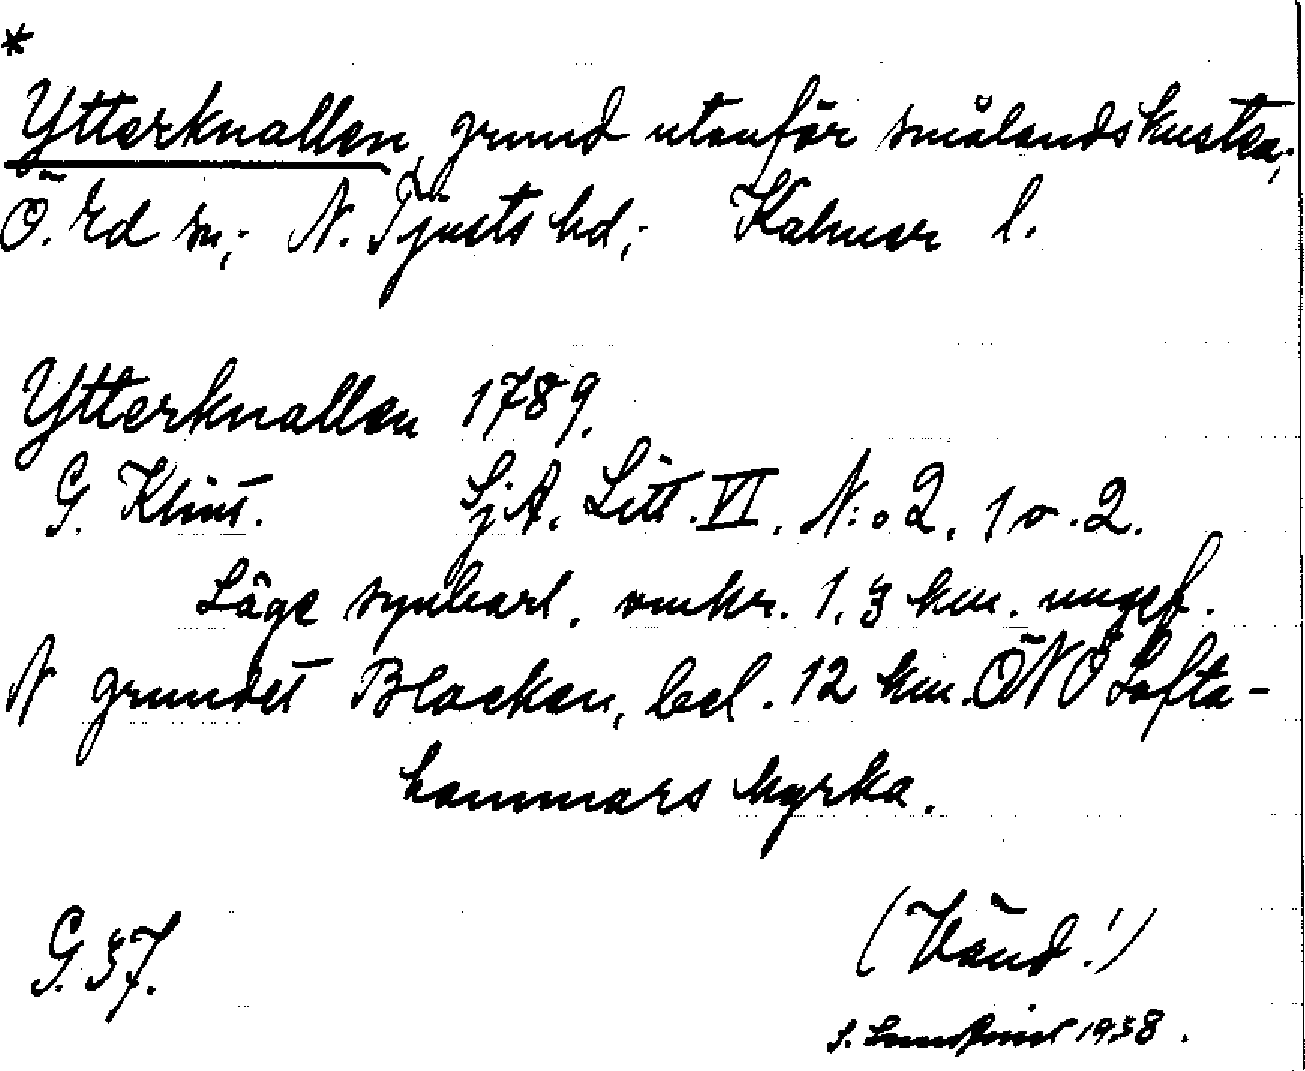 *
Ytterknallen, grund utanför smålandskusten;
Ö. Ed sn; N. Tjusts hd; Kalmar l.
Ytterknallen 1789.
G. Klint. SjA. Litt. VI. N:o 2. 1 o. 2.
Läge synbarl. omkr. 1,3 km. ungef.
N grundet Blocken, bel. 12 km. ÖNÖ Lofta-
hammars kyrka.
G. 37.
(Vänd!)
S. 1938.